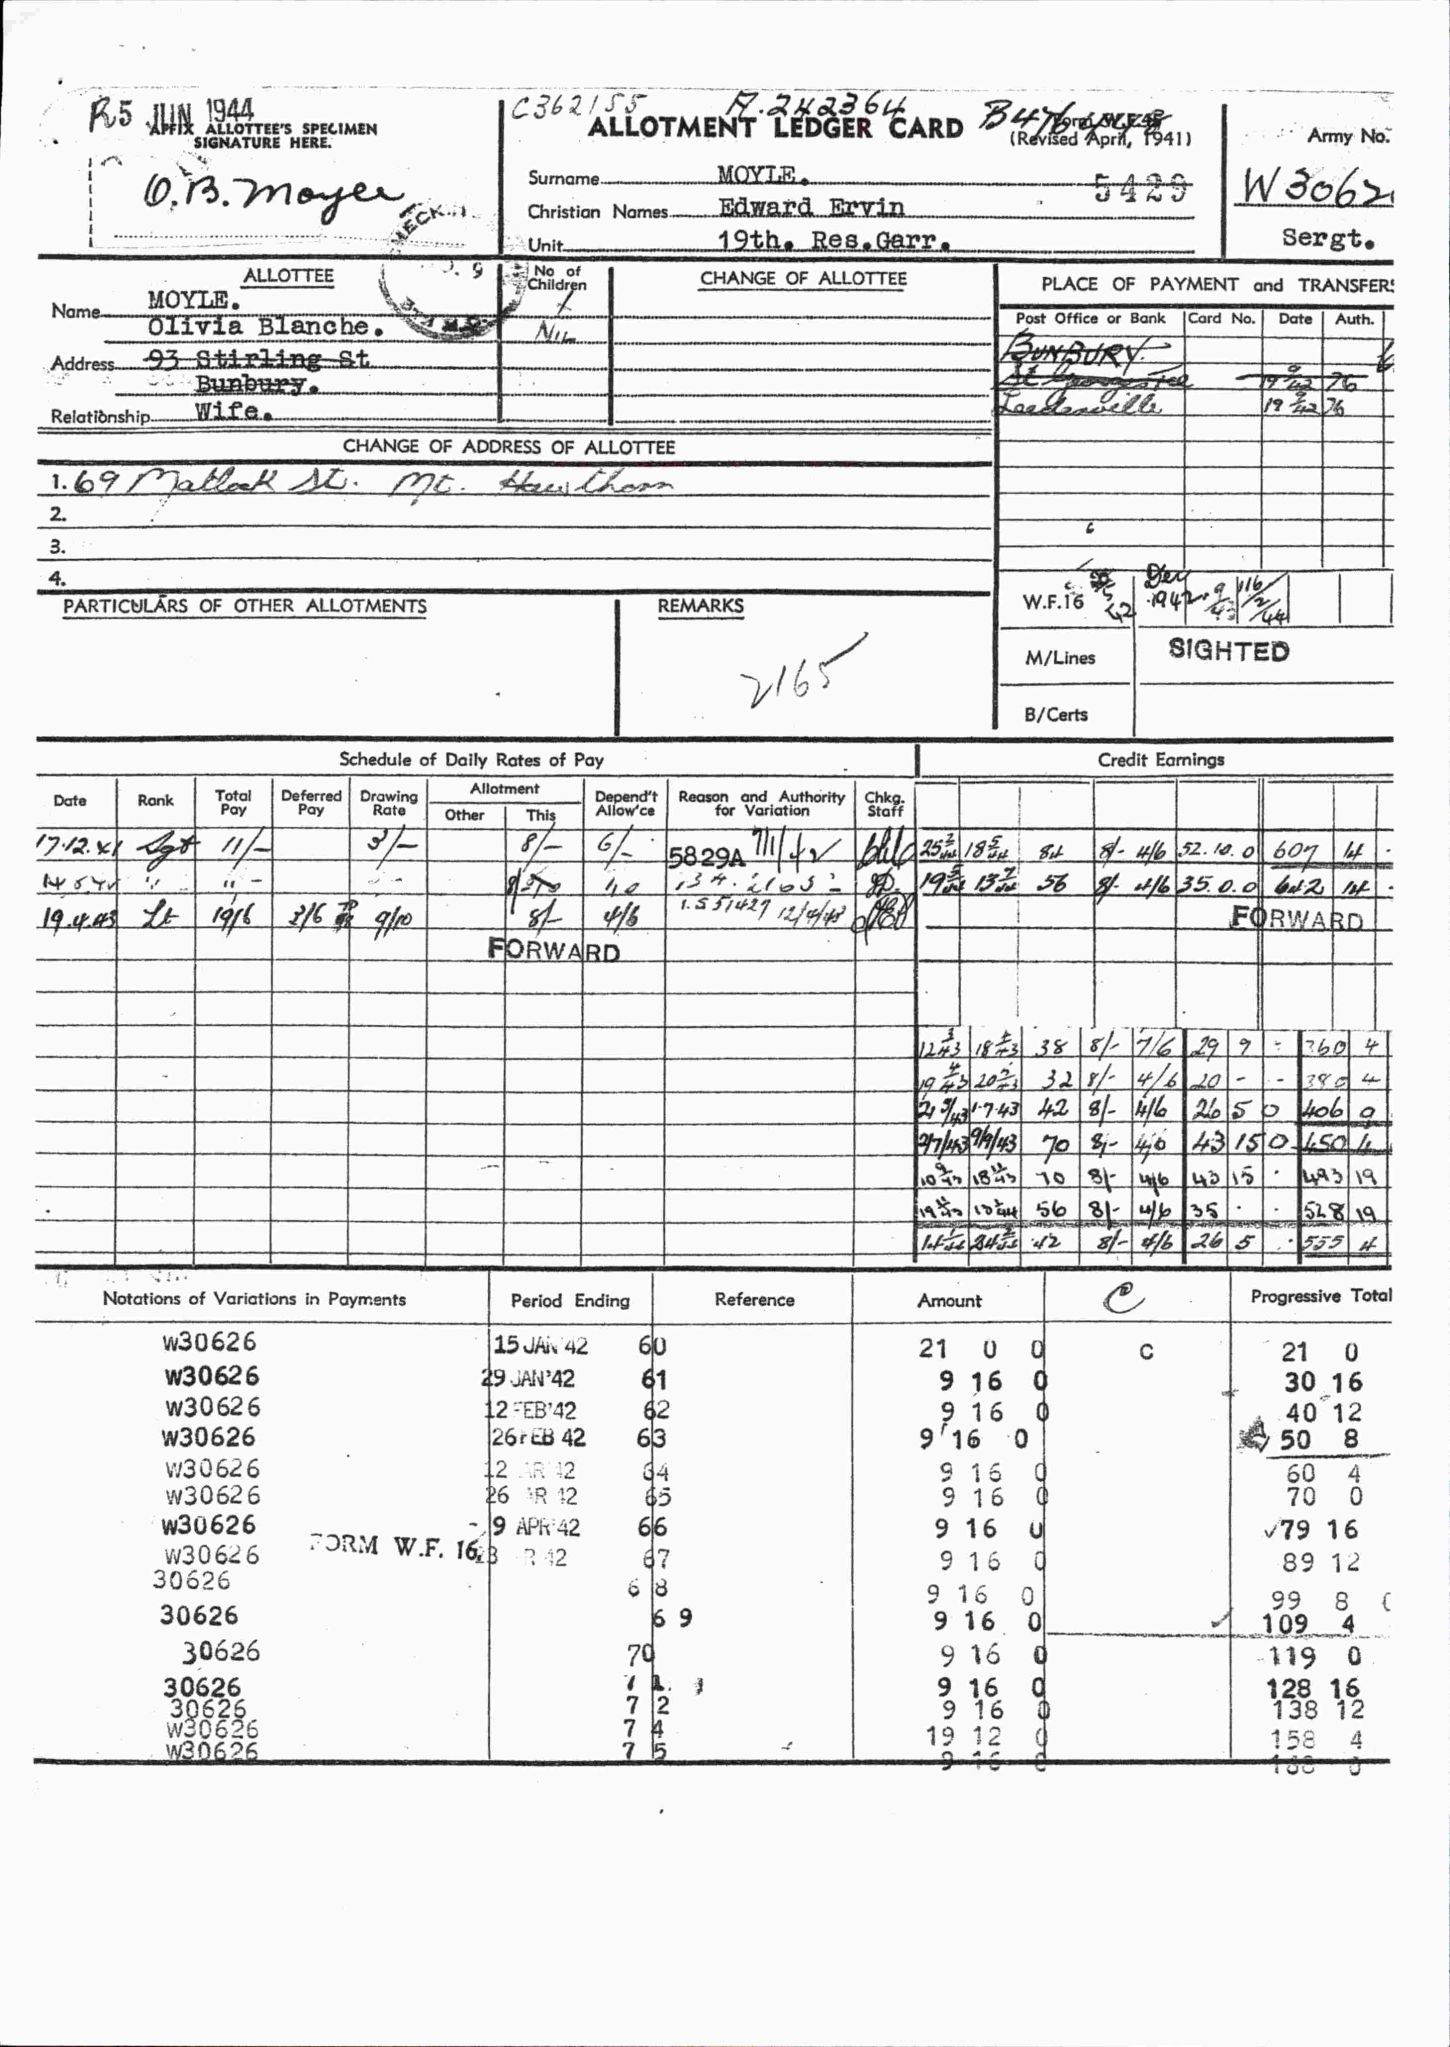 R5 JUN 1944
AFFIX ALLOTTEE'S SPECIMEN
SIGNATURE HERE.
O.B. Moyle
C362155 A.242364
ALLOTMENT LEDGER CARD
(Revised April, 1941)
Surname MOYLE.
5429
Christian Names Edward Ervin
Unit 19th. Res.Garr.
Army No.
W3062
Sergt.
ALLOTTEE
Name MOYLE.
Olivia Blanche.
Address 93 Stirling St
Bunbury.
Relationship Wife.
No of
Children
NIL
CHANGE OF ALLOTTEE
PLACE OF PAYMENT and TRANSFERS
Post Office or Bank Card No. Date Auth.
BUNBURY
St Georges Tce 19 9/42 76
Leederville 19 9/42 76
CHANGE OF ADDRESS OF ALLOTTEE
1. 69 Matlock St. Mt. Hawthorn
2.
3.
4.
PARTICULARS OF OTHER ALLOTMENTS
REMARKS
2165
W.F.16 Dec 1942 9/43 16/2/44
M/Lines SIGHTED
B/Certs
Schedule of Daily Rates of Pay
Credit Earnings
Date Rank Total Pay Deferred Pay Drawing Rate Allotment Other This Depend't Allow'ce Reason and Authority for Variation Chkg. Staff
17.12.41 Sgt 11/- 3/- 8/- 6/- 5829A 7/1/42
25 2/44 18 5/44 84 8/- 4/6 52.10.0 607 14
19 5/44 13 7/44 56 8/- 4/6 35.0.0 642 14
19.4.43 Lt 19/6 3/6 9/10 8/- 4/6 12/4/43
FORWARD
FORWARD
12 3/43 18 4/43 38 8/- 7/6 29 9 - 360 4
19 4/43 20 5/43 32 8/- 4/6 20 - - 380 4
21 5/43 1.7.43 42 8/- 4/6 26 5 0 406 9
2/7/43 9/9/43 70 8/- 4/6 43 15 0 450 4
10 9/43 18 11/43 70 8/- 4/6 43 15 493 19
56 8/- 4/6 35 528 19
42 8/- 4/6 26 5 555 4
Notations of Variations in Payments Period Ending Reference Amount C Progressive Total
W30626 15 JAN '42 60 21 0 0 C 21 0
W30626 29 JAN '42 61 9 16 0 30 16
W30626 12 FEB '42 62 9 16 0 40 12
W30626 26 FEB 42 63 9 16 0 50 8
W30626 12 AR 42 64 9 16 0 60 4
W30626 26 AR 42 65 9 16 0 70 0
W30626 9 APR '42 66 9 16 0 79 16
FORM W.F. 16.
W30626 23 R 42 67 9 16 0 89 12
30626 68 9 16 0 99 8 0
30626 69 9 16 0 109 4
30626 70 9 16 0 119 0
30626 71 9 16 0 128 16
30626 72 9 16 0 138 12
W30626 74 19 12 0 158 4
W30626 75 9 16 0 168 0